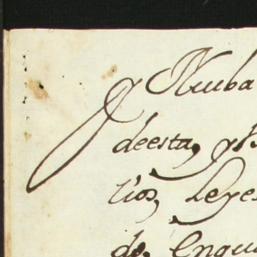 Nuuba
deesta, y
rios, Leyes
de, Enqu